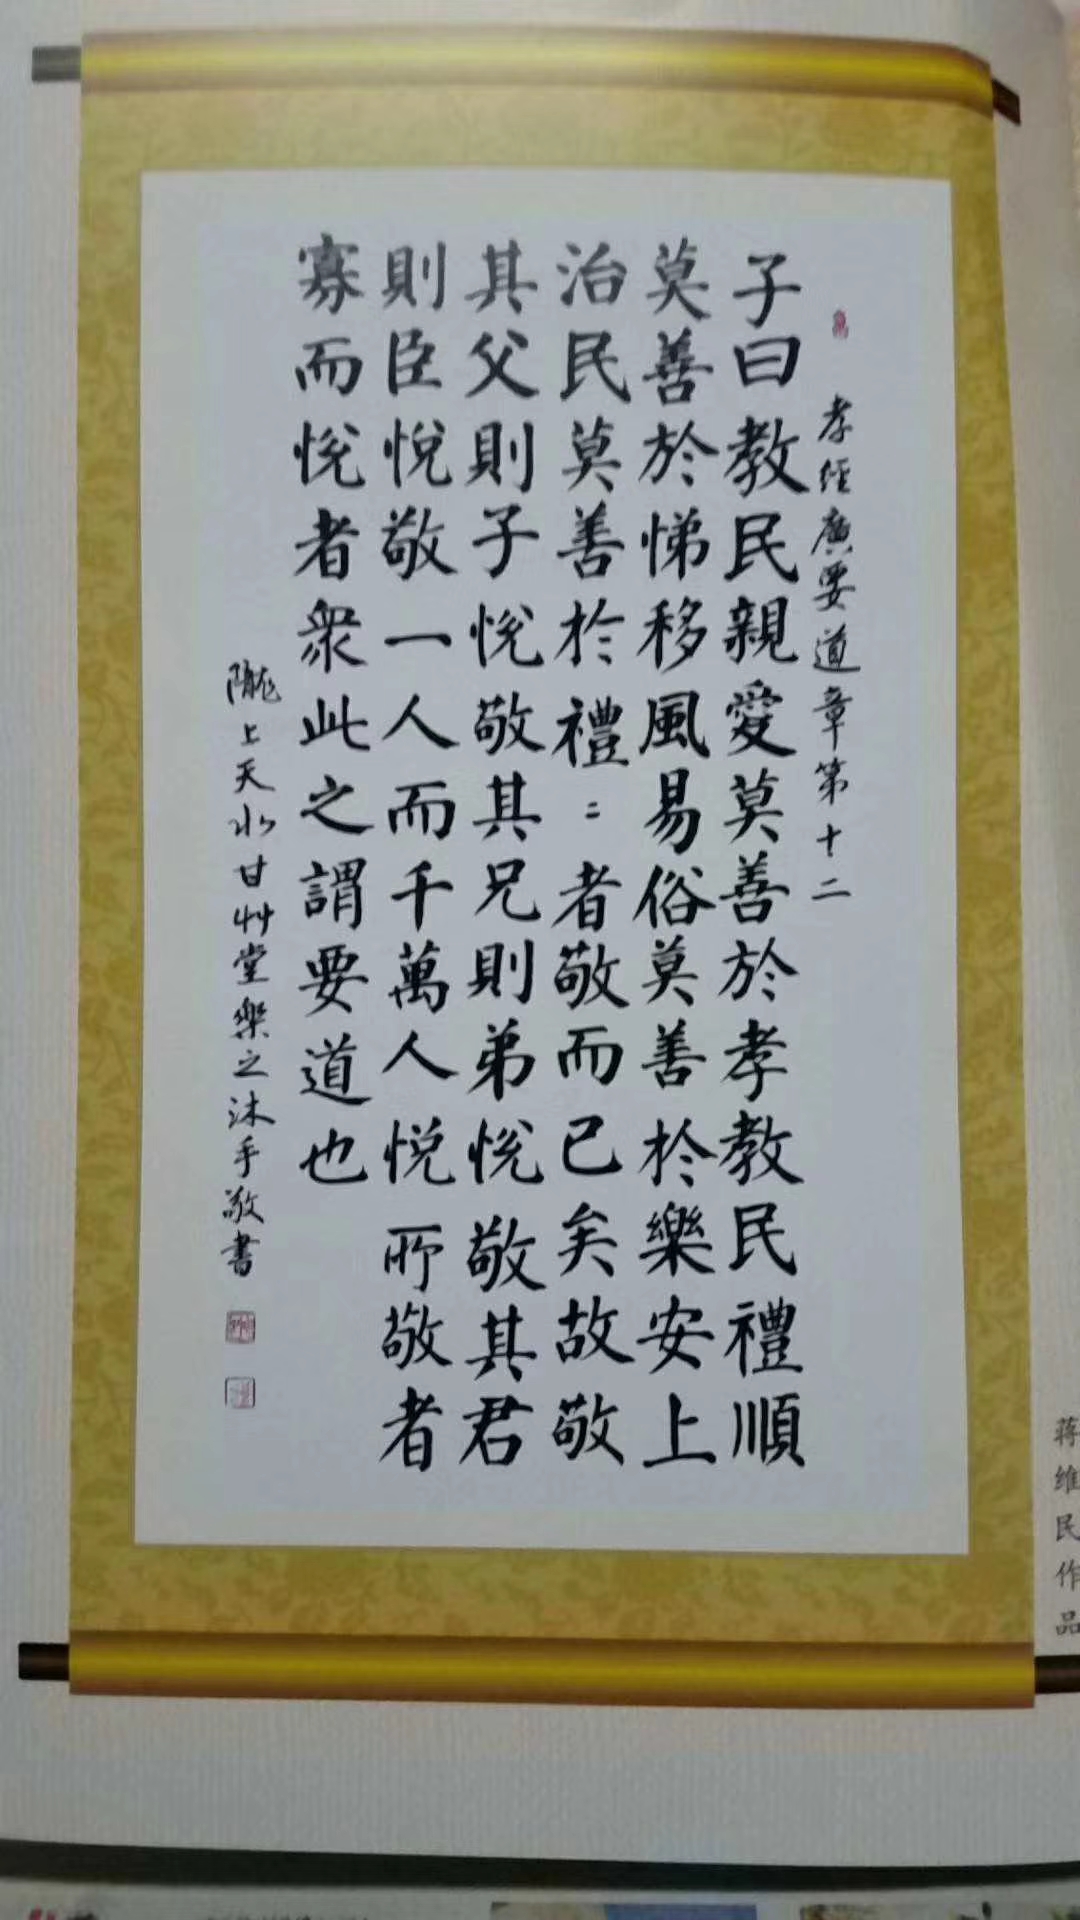 孝經廣要道章第十二
子曰教民親愛莫善於孝教民禮順
莫善於悌移風易俗莫善於樂安上
治民莫善於禮〻者敬而已矣故敬
其父則子悅敬其兄則弟悅敬其君
則臣悅敬一人而千萬人悅所敬者
寡而悅者衆此之謂要道也
隴上天水甘艸堂樂之沐手敬書
蒋维民作品